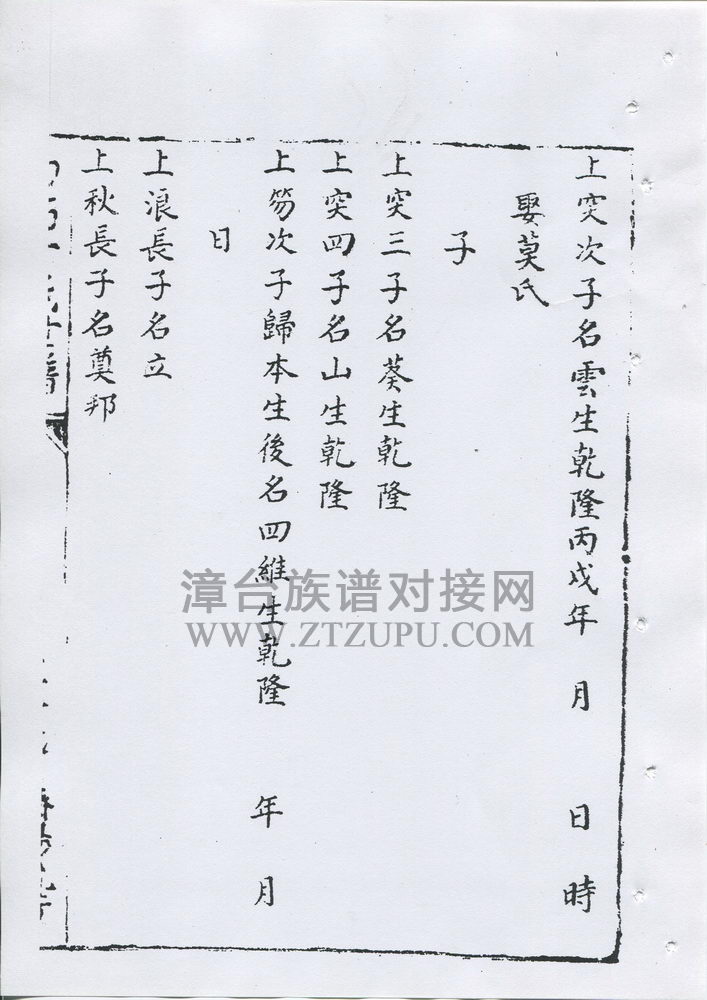 上突次子名雲生乾隆丙戌年 月 日 時
娶莫氏
子
上突三子名葵生乾隆
上突四子名山生乾隆
上笏次子歸本生後名四維生乾隆 年 月
日
上浪長子名立
上秋長子名奠邦
漳台族谱对接网
WWW.ZTZUPU.COM